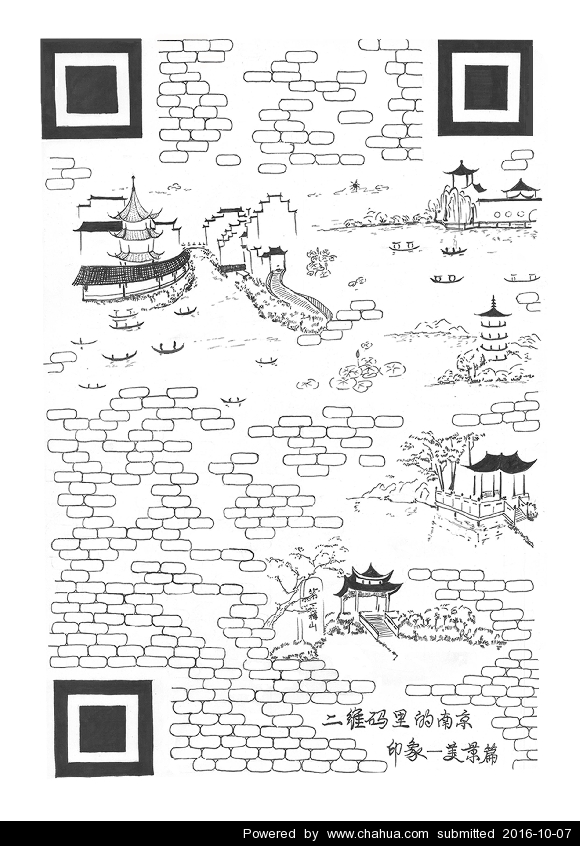 二维码里的南京
印象—美景篇
Powered by www.chahua.com submitted 2016-10-07